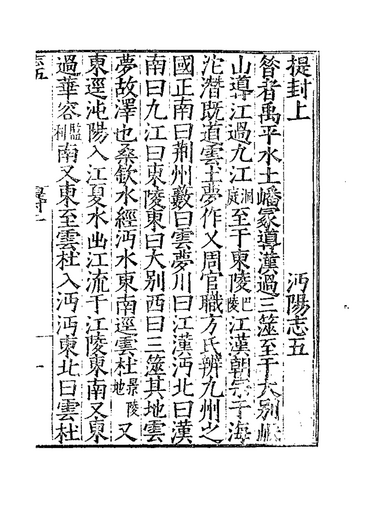 提封上 沔陽志五
昝者禹平水土嶓冡導漢過三澨至于大别岷
山導江過九江洞庭至于東陵巴陵江漢朝宗于海
沱潛既道雲土夢作乂周官職方氏辨九州之
國正南曰荆州藪曰雲夢川曰江漢沔北曰漢
南曰九江曰東陵東曰大别西曰三澨其地雲
夢故澤也桑欽水經沔水東南逕雲杜景陵地又
東逕沌陽入江夏水出江流于江陵東南又東
過華容監利南又東至雲杜入沔沔東北曰雲杜